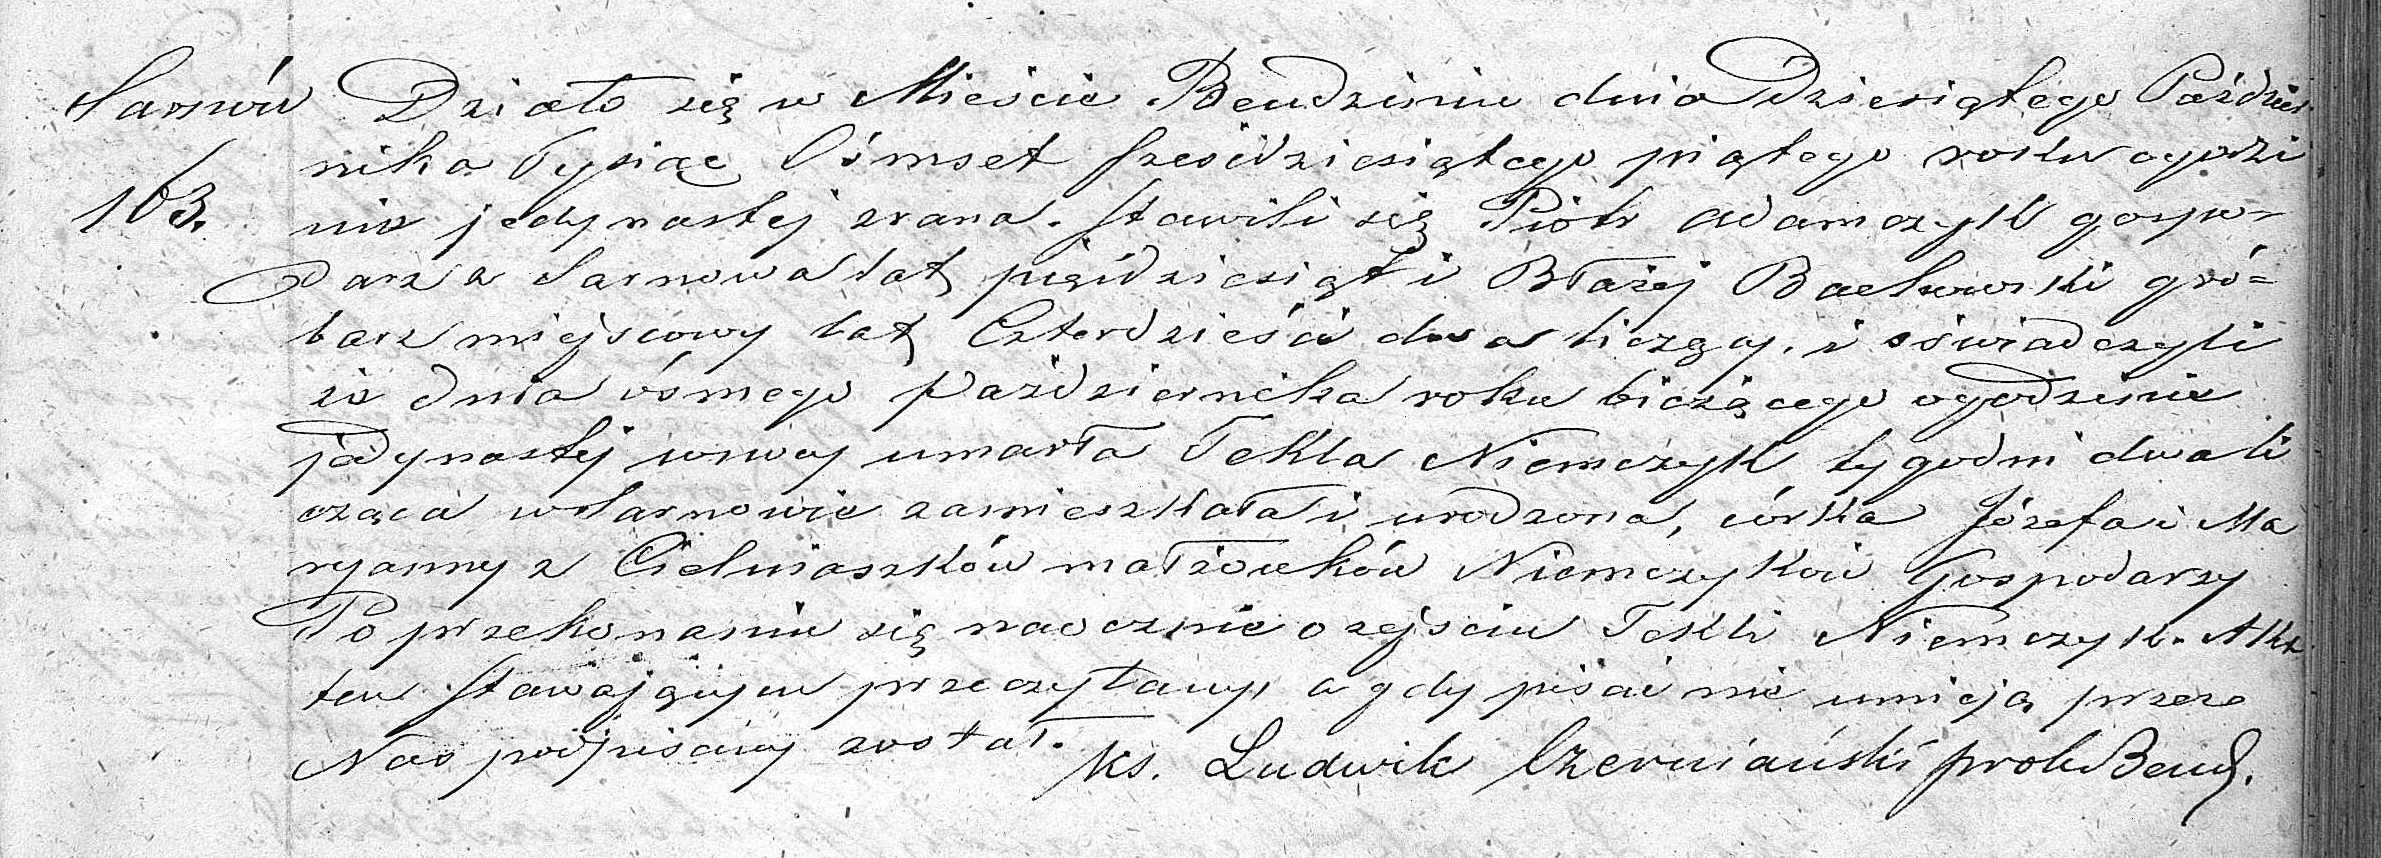 Sarnów Działo się w Mieście Bendzinie dnia Dziesiątego Paździer
nika Tysiąc Ośmset sześćdziesiątego piątego roku ogodzi
103. nie jedynastej zrana. Stawili się Piotr Adamczyk gospo-
darz z Sarnowa lat pięćdziesiąt i Błażej Bachowski gró=
barz miejscowy lat Czterdzieści dwa liczący, i oświadczyli
iż dnia ósmego Października roku bieżącego ogodzinie
jedynastej wnocy umarła Tekla Niemczyk tygodni dwa li
cząca wSarnowie zamieszkała i urodzona, córka Józefa i Ma
ryanny z Cieluiaszków małżonków Niemczyków Gospodarzy
Po przekonaniu się naocznie o zejściu Tekli Niemczyk. Akt
ten Stawającym przeczytany, a gdy pisać nie umieją przez
Nas podpisany został. Ks. Ludwik Czerniański prob Bend.